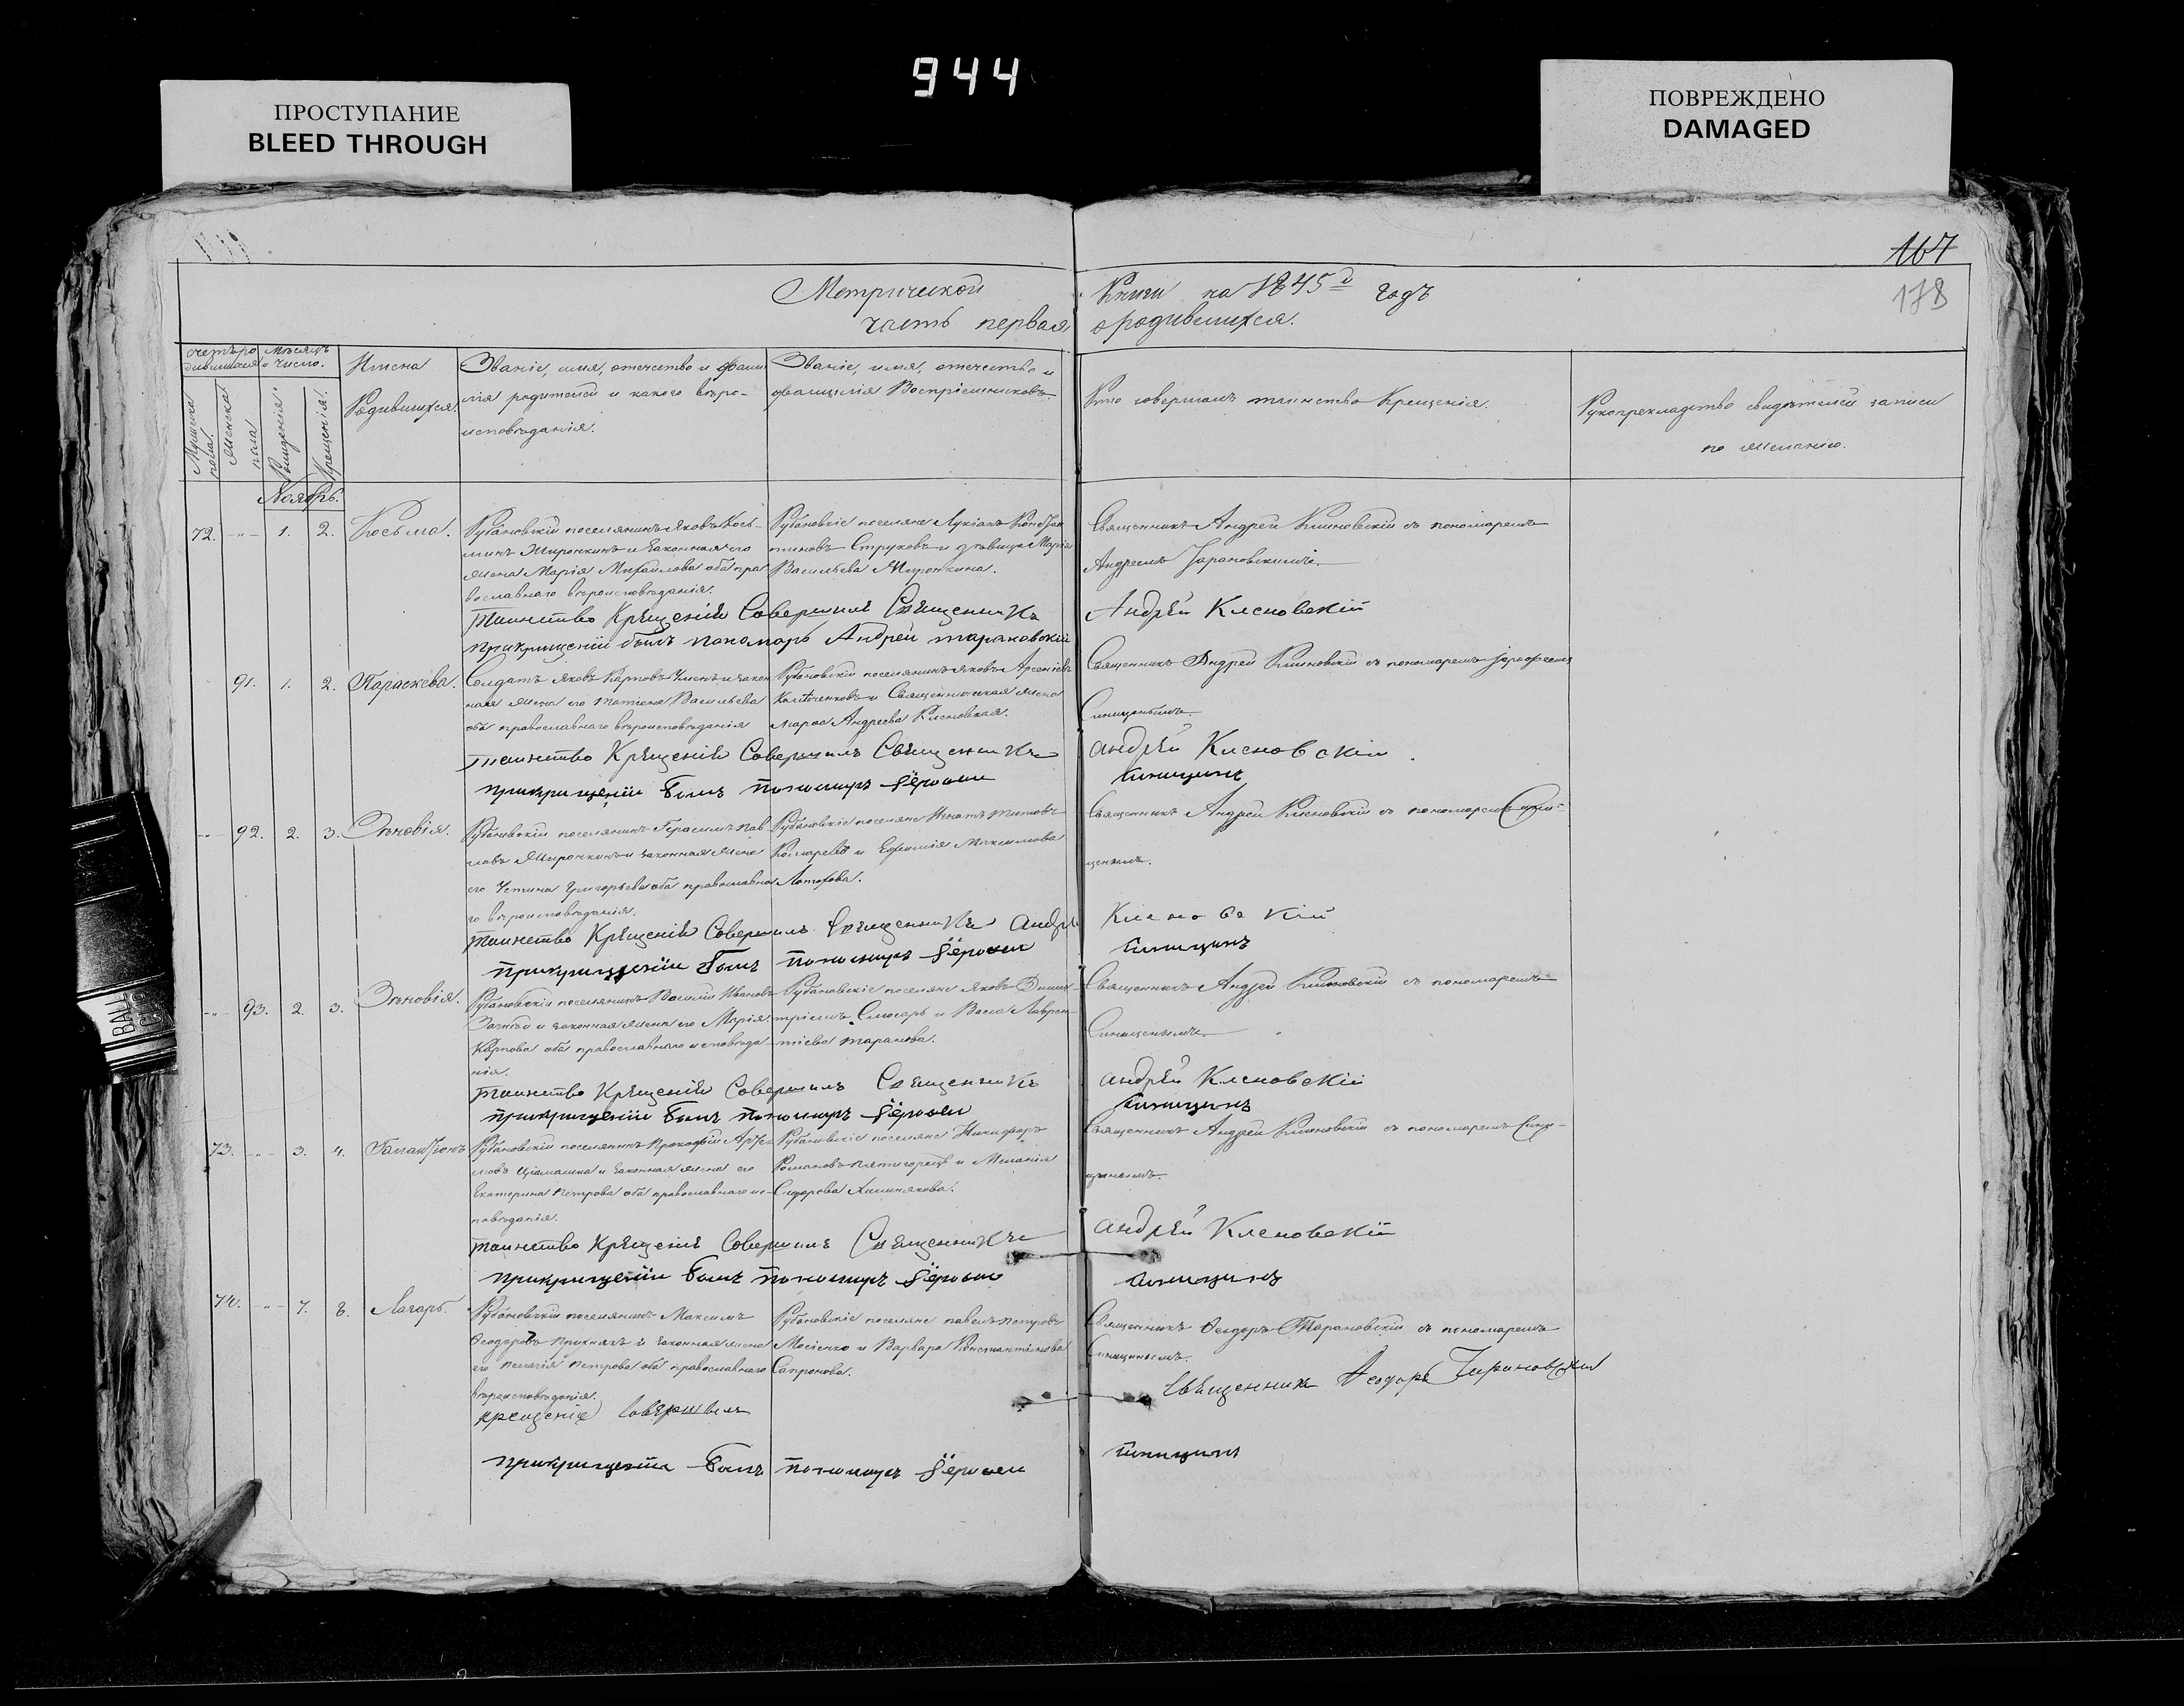 944
ПРОСТУПАНИЕ
BLEED THROUGH
ПОВРЕЖДЕНО
DAMAGED
167
178
Метрической Книги на 1845й годъ
часть первая о родившихся.
Счетъ ро
дившихся
Мѣсяцъ
и число.
Мужеска
пола.
Женска
пола
Рожденія
Крещенія.
Имена
Родившихся.
Званіе, имя, отчество и фами
лія родителей и какого вѣро-
исповѣданія.
Званіе, имя, отчество и
фамилія Воспріемниковъ.
Кто совершалъ таинство Крещенія.
Рукоприкладство свидѣтелей записи
по желанію.
Ноябрь.
72. 1. 2. Косьма.
Рубановскій поселянинъ Яковъ Кось-
минъ Миронкинъ и законная его
жена Марія Михайлова оба пра
вославнаго вѣроисповѣданія.
Рубановскіе поселяне Лукіанъ
Струковъ и дѣвица Марія
Васильева Миронкина.
Священникъ Андрей Клсновскій съ пономаремъ
Андреемъ Тарановскимъ.
Таинство Крѣщеній Совершилъ Свѣщенникъ Андрѣй Клсновскій
прикрищеніи былъ пономарь Андрей тарановскій
91. 1. 2. Параскева.
Солдатъ Яковъ Карповъ и закон
ная жена его Татіана Васильева
оба православнаго вѣроисповѣданія
Рубановскій поселянинъ Яковъ Арсеніевъ
и Священническая жена
Марѳа Андреева Клсновская.
Священникъ Андрей Клсновскій съ пономаремъ
Синицынымъ.
таинство Крѣщеній Совершилъ Свѣщенникъ андрѣй Клсновскій
прикрищеніи былъ пономарь синицынъ
92. 2. 3. Зѣновія.
Рубановскій поселянинъ Герасимъ Пав
ловъ Миронкинъ и законная жена
его Устина Григорьева оба православна
го вѣроисповѣданія.
Рубановскіе поселяне Игнатъ Титовъ
и Ефимія Максимова
Священникъ Андрей Клсновскій съ пономаремъ Сини-
цынымъ.
таинство Крѣщеній Совершилъ Свѣщенникъ Андрѣ Клсновскій
прикрищеніи былъ пономарь синицынъ
93. 2. 3. Зѣновія.
Рубановскій поселянинъ Василій Ивановъ
и законная жена его Марія
Карпова оба православнаго исповѣда
нія.
Рубановскіе поселяне Яковъ Дими-
тріевъ Слюсарь и Васса Лаврен-
тіева Таранова.
Священникъ Андрей Клсновскій съ пономаремъ
Синицынымъ.
таинство Крѣщеній Совершилъ Свѣщенникъ андрѣй Клсновскій
прикрищеніи былъ пономарь синицынъ
73. 3. 4. Галактіонъ
Рубановскій поселянинъ Прокофій
и законная жена его
Екатерина Петрова оба православнаго ис-
повѣданія.
Рубановскіе поселяне Никифоръ
Романовъ Пятигорецъ и Меланія
Сидорова
Священникъ Андрей Клсновскій съ пономаремъ Сини-
цынымъ.
таинство Крѣщеніе Совершилъ Свѣщенникъ андрѣй Клсновскій
прикрищеніи былъ пономарь синицынъ
74. 7. 8. Лазарь.
Рубановскій поселянинъ Максимъ
Ѳеодоровъ и законная жена
его Пелагія Петрова оба православнаго
вѣроисповѣданія.
Рубановскіе поселяне Павелъ Петровъ
Мосіенко и Варвара Константинова
Сапронова.
Священникъ Ѳеодоръ Тарановскій съ пономаремъ
Синицынымъ.
крещеніе совершилъ свѣщенникъ Ѳеодоръ Тарановскій
прикрищеніи былъ пономарь синицынъ